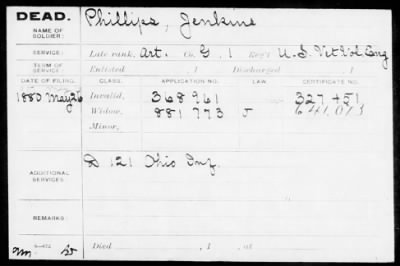 DEAD. Phillips, Jenkins
NAME OF SOLDIER:
SERVICE: Late rank, Art. Co. G, 1 Reg't U.S. Vet Vol. Eng
TERM OF SERVICE: Enlisted , 1 Discharged , 1
DATE OF FILING. CLASS. APPLICATION NO. LAW. CERTIFICATE NO.
1880 May 26 Invalid, 368961 327451
Widow, 881773 641,013
Minor,
D 121 Ohio Inf.
ADDITIONAL SERVICES:
REMARKS:
Died , 1 , at